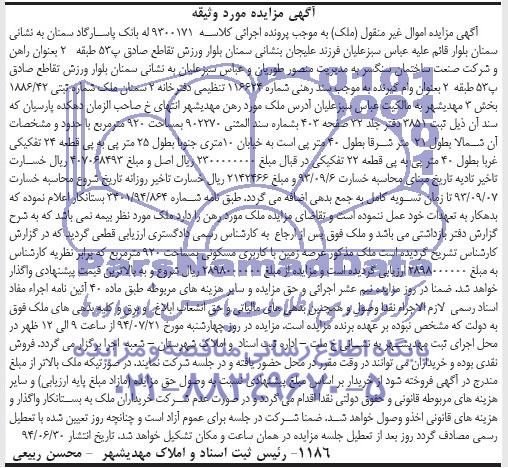 آگهی مزایده مورد وثیقه
آگهی مزایده اموال غیر منقول (ملک) به موجب پرونده اجرائی کلاسه ۹۳۰۰۱۷۱ له بانک پاسارگاد سمنان به نشانی
سمنان بلوار قائم علیه عباس سبزعلیان فرزند علیجان بنشانی سمنان بلوار ورزش تقاطع صادق پ۵۳ طبقه ۲ بعنوان راهن
و شرکت صنعت ساختمان سنگسر به مدیریت منصور طوریان و عباس سبزعلیان به نشانی سمنان بلوار ورزش تقاطع صادق
پ۵۳ طبقه ۲ بعنوان وام گیرنده به موجب سند رهنی شماره ۱۱۶۶۳۴ تنظیمی دفترخانه ۲ سمنان ملک شماره ثبتی ۱۸۸۶/۴۲
بخش ۳ مهدیشهر به مالکیت عباس سبزعلیان آدرس ملک مورد رهن مهدیشهر انتهای خ صاحب الزمان دهکده پارسیان که
سند آن ذیل ثبت ۳۸۵۱ دفتر جلد ۲۲ صفحه ۴۰۳ بشماره سند المثنی ۹۰۲۲۷۰ بمساحت ۹۲۰ مترمربع با حدود و مشخصات
آن شمالا بطول ۲۱ متر شرقا بطول ۴۰ متر پی است به خیابان ۱۰متری جنوبا بطول ۲۵ متر پی به پی قطعه ۲۴ تفکیکی
غربا بطول ۴۰ متر پی به پی قطعه ۲۲ تفکیکی در قبال مبلغ ۲۳۰۰۰۰۰۰۰۰ ریال اصل و مبلغ ۴۰۷۰۶۸۴۹۳ ریال خسارت
تاخیر تادیه تاریخ مبنای محاسبه خسارت ۹۳/۰۹/۶ و مبلغ ۲۱۴۲۴۶۶ ریال خسارت تاخیر روزانه تاریخ شروع محاسبه خسارت
۹۳/۰۹/۰۷ تا زمان تسویه کامل به جمع بدهی اضافه می گردد. طبق نامه شماره ۲۴۰۱/۹۴/۸۶۴ بستانکار اعلام نموده که
بدهکار به تعهدات خود عمل ننموده است و تقاضای مزایده ملک مورد رهن را دارد ملک مورد نظر بیمه نمی باشد که به شرح
گزارش دفتر بازداشتی می باشد و ملک فوق پس از ارجاع به کارشناس رسمی دادگستری ارزیابی قطعی گردید که در گزارش
کارشناس تشریح گردیده است ملک مذکور عرصه زمین با کاربری مسکونی بمساحت ۹۲۰ مترمربع که برابر نظریه کارشناس
به مبلغ ۲۸۹۸۰۰۰۰۰۰ ریال ارزیابی گردیده است و مزایده از مبلغ ۲۸۹۸۰۰۰۰۰۰ ریال شروع و به بالاترین قیمت پیشنهادی واگذار
خواهد شد. ضمنا در روز مزایده نیم عشر اجرائی و حق مزایده و سایر هزینه های مربوطه طبق ماده ۴۰ آئین نامه اجراء مفاد
اسناد رسمی لازم الاجراء نقدا وصول و همچنین بدهی های مالیاتی و حق انشعاب و برق و کلیه بدهی های ملک فوق
به دولت که مشخص نبوده بر عهده برنده مزایده است. مزایده در روز چهارشنبه مورخ ۹۴/۰۷/۲۱ از ساعت ۹ الی ۱۲ ظهر در
محل اجرای ثبت مهدیشهر به نشانی خ ملت – اداره ثبت اسناد و املاک شهرستان – شعبه اجرا برگزار می گردد. فروش
نقدی بوده و خریداران می توانند در وقت مقرر در محل حضور یافته و در جلسه شرکت نمایند. در صورتیکه ملک بالاتر از مبلغ
مندرج در آگهی فروخته شود از خریدار بر اساس مبلغ پیشنهادی نسبت به وصول حق مزایده (مازاد مبلغ پایه ارزیابی) و سایر
هزینه های مربوطه قانونی و حقوق دولتی نقدا اقدام می گردد و در صورت عدم شرکت خریداران ملک به بستانکار واگذار و
هزینه های قانونی اخذو وصول خواهد شد. ضمنا شرکت در جلسه برای عموم آزاد است و چنانچه روز تعیین شده با تعطیل
رسمی مصادف گردد روز بعد از تعطیل جلسه مزایده در همان ساعت و مکان تشکیل خواهد شد. تاریخ انتشار ۹۴/۰۶/۳۰
۱۱۸۶– رئیس ثبت اسناد و املاک مهدیشهر – محسن ربیعی
پایگاه اطلاع رسانی مناقصه و مزایده